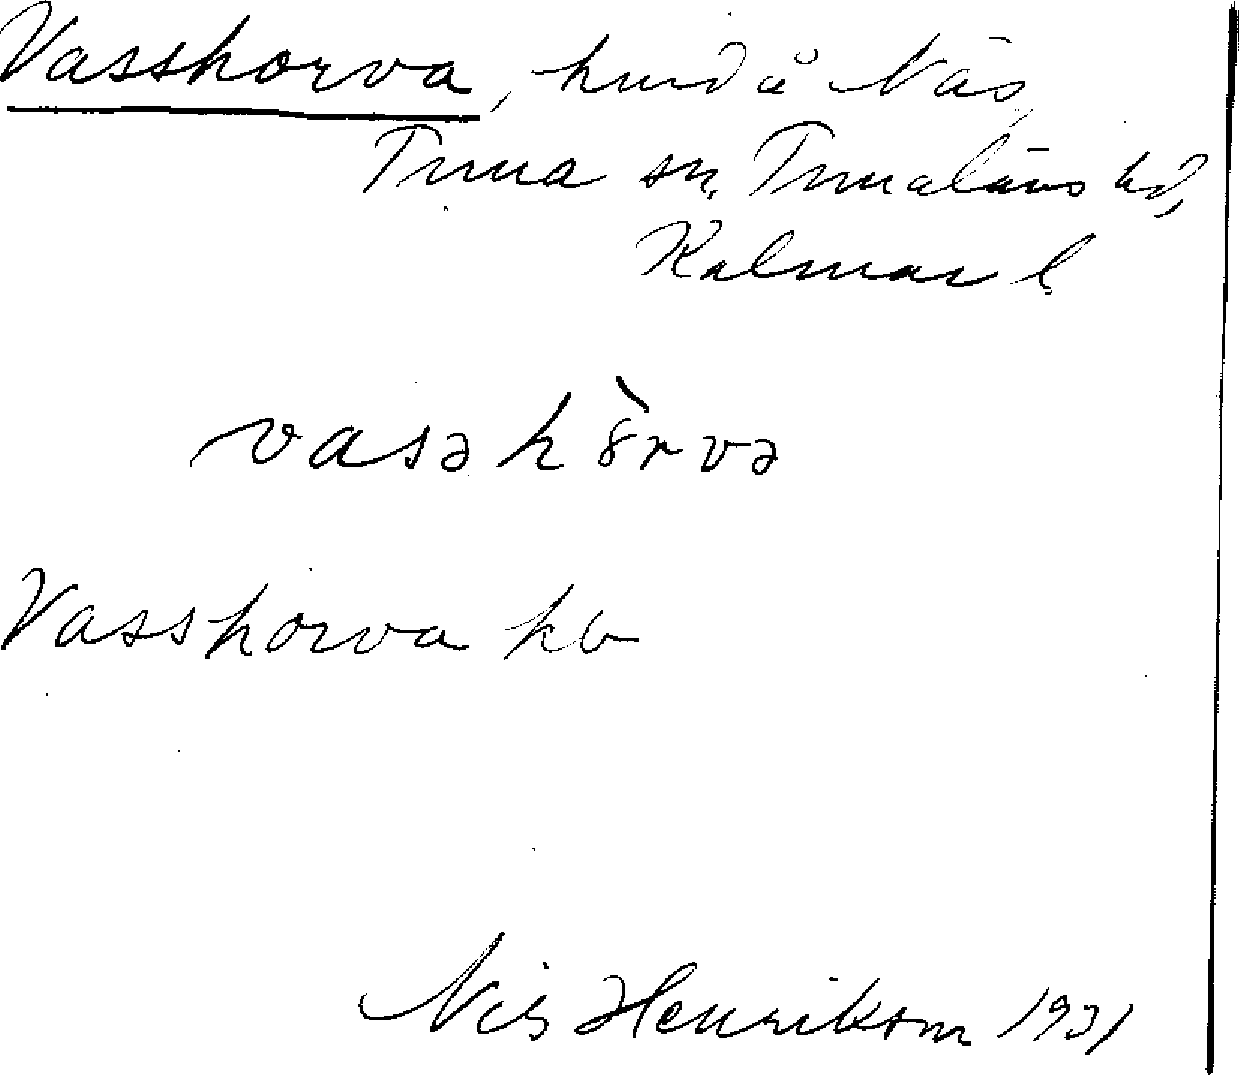 Vasshorva, hmd å Näs,
Tuna sn, Tunaläns hd,
Kalmar l
vasəhòrvə
Vasshorva kb
Nils Henrikson 1931